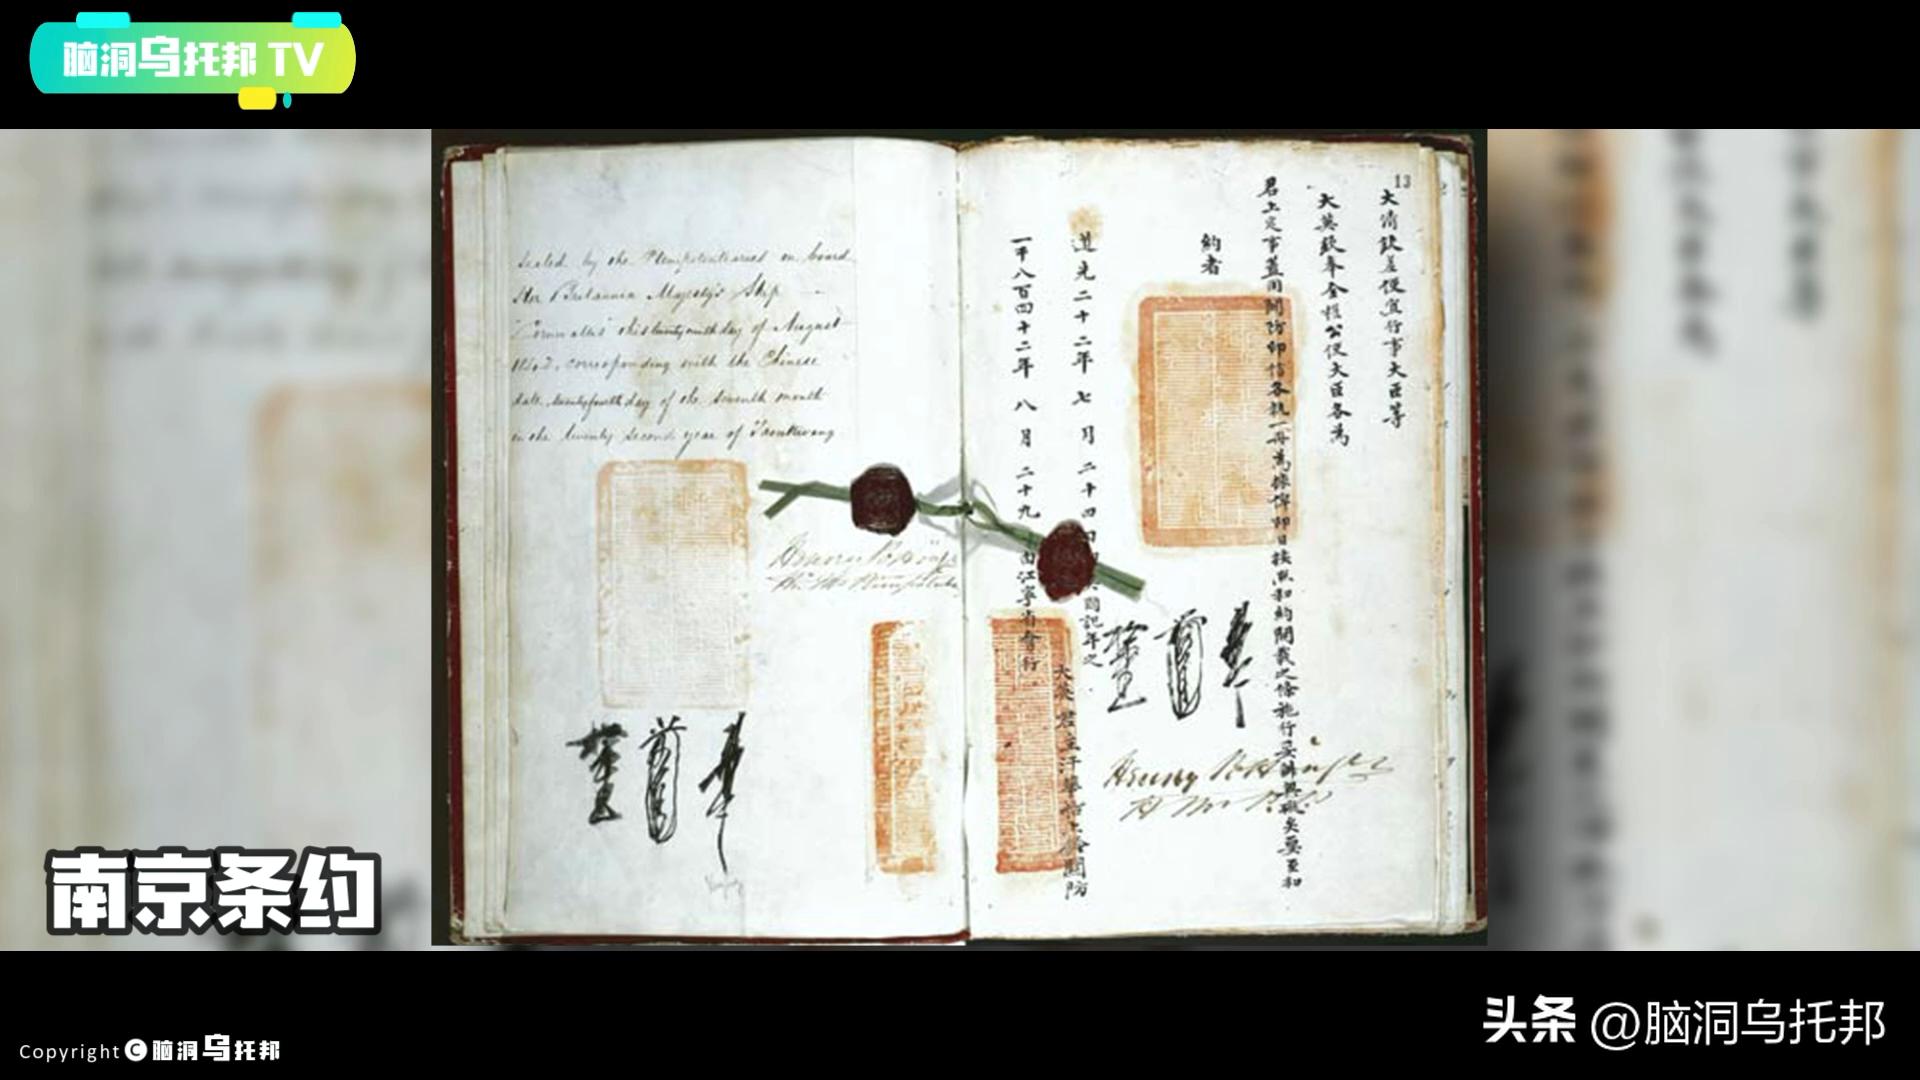 脑洞乌托邦 TV
sealed by the Plenipotentiaries on board
Her Britannic Majesty's Ship
"Cornwallis" this twenty ninth day of August
1842, corresponding with the Chinese
date, twenty fourth day of the seventh month
in the twenty second year of Taoukwang
Henry Pottinger
13
大清欽差便宜行事大臣等
大英欽奉全權公使大臣各為
君上定事蓋用關防印信各執一冊為據俾即日按照和約開載之條施行妥辦無礙矣要至和
約者
道光二十二年七月二十四日即英國記年之
一千八百四十二年八月二十九日由江寧省會行
大英君主汗華
關防
Henry Pottinger
南京条约
Copyright © 脑洞乌托邦
头条 @脑洞乌托邦